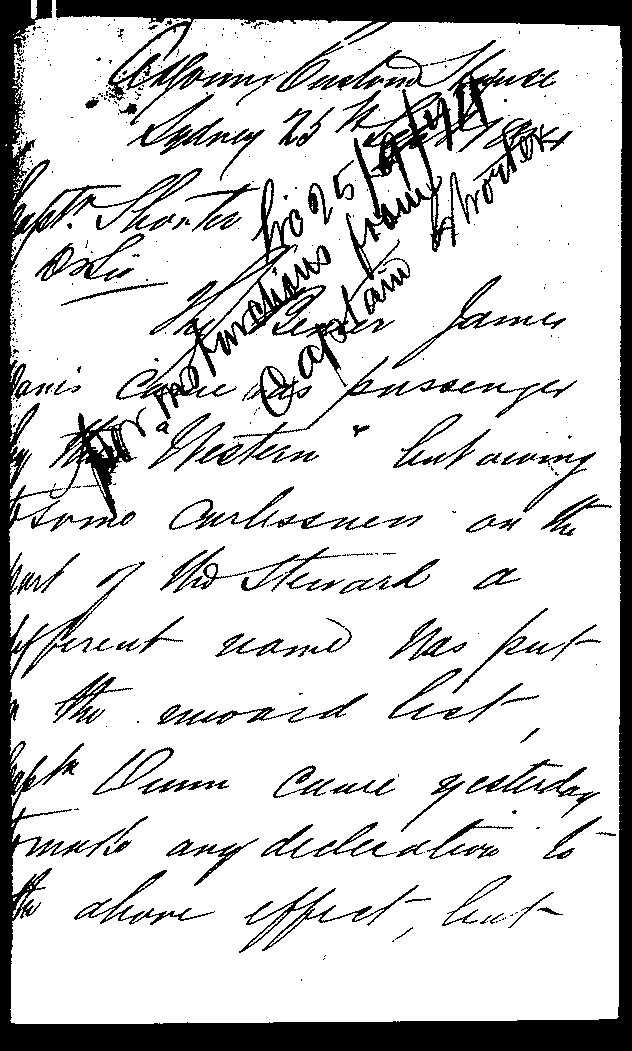 Custom House
Sydney 25th
Captn Shorter
Dr Sir
The Bearer James
Davis came as passenger
by the "Western" but owing
to some carlessness on the
part of the Steward a
different name was put
in the inward list,
Captn Dunn came yesterday
to make any decleration to
the above effect, but
No 25/9/74
for instructions from
Captain Shorter